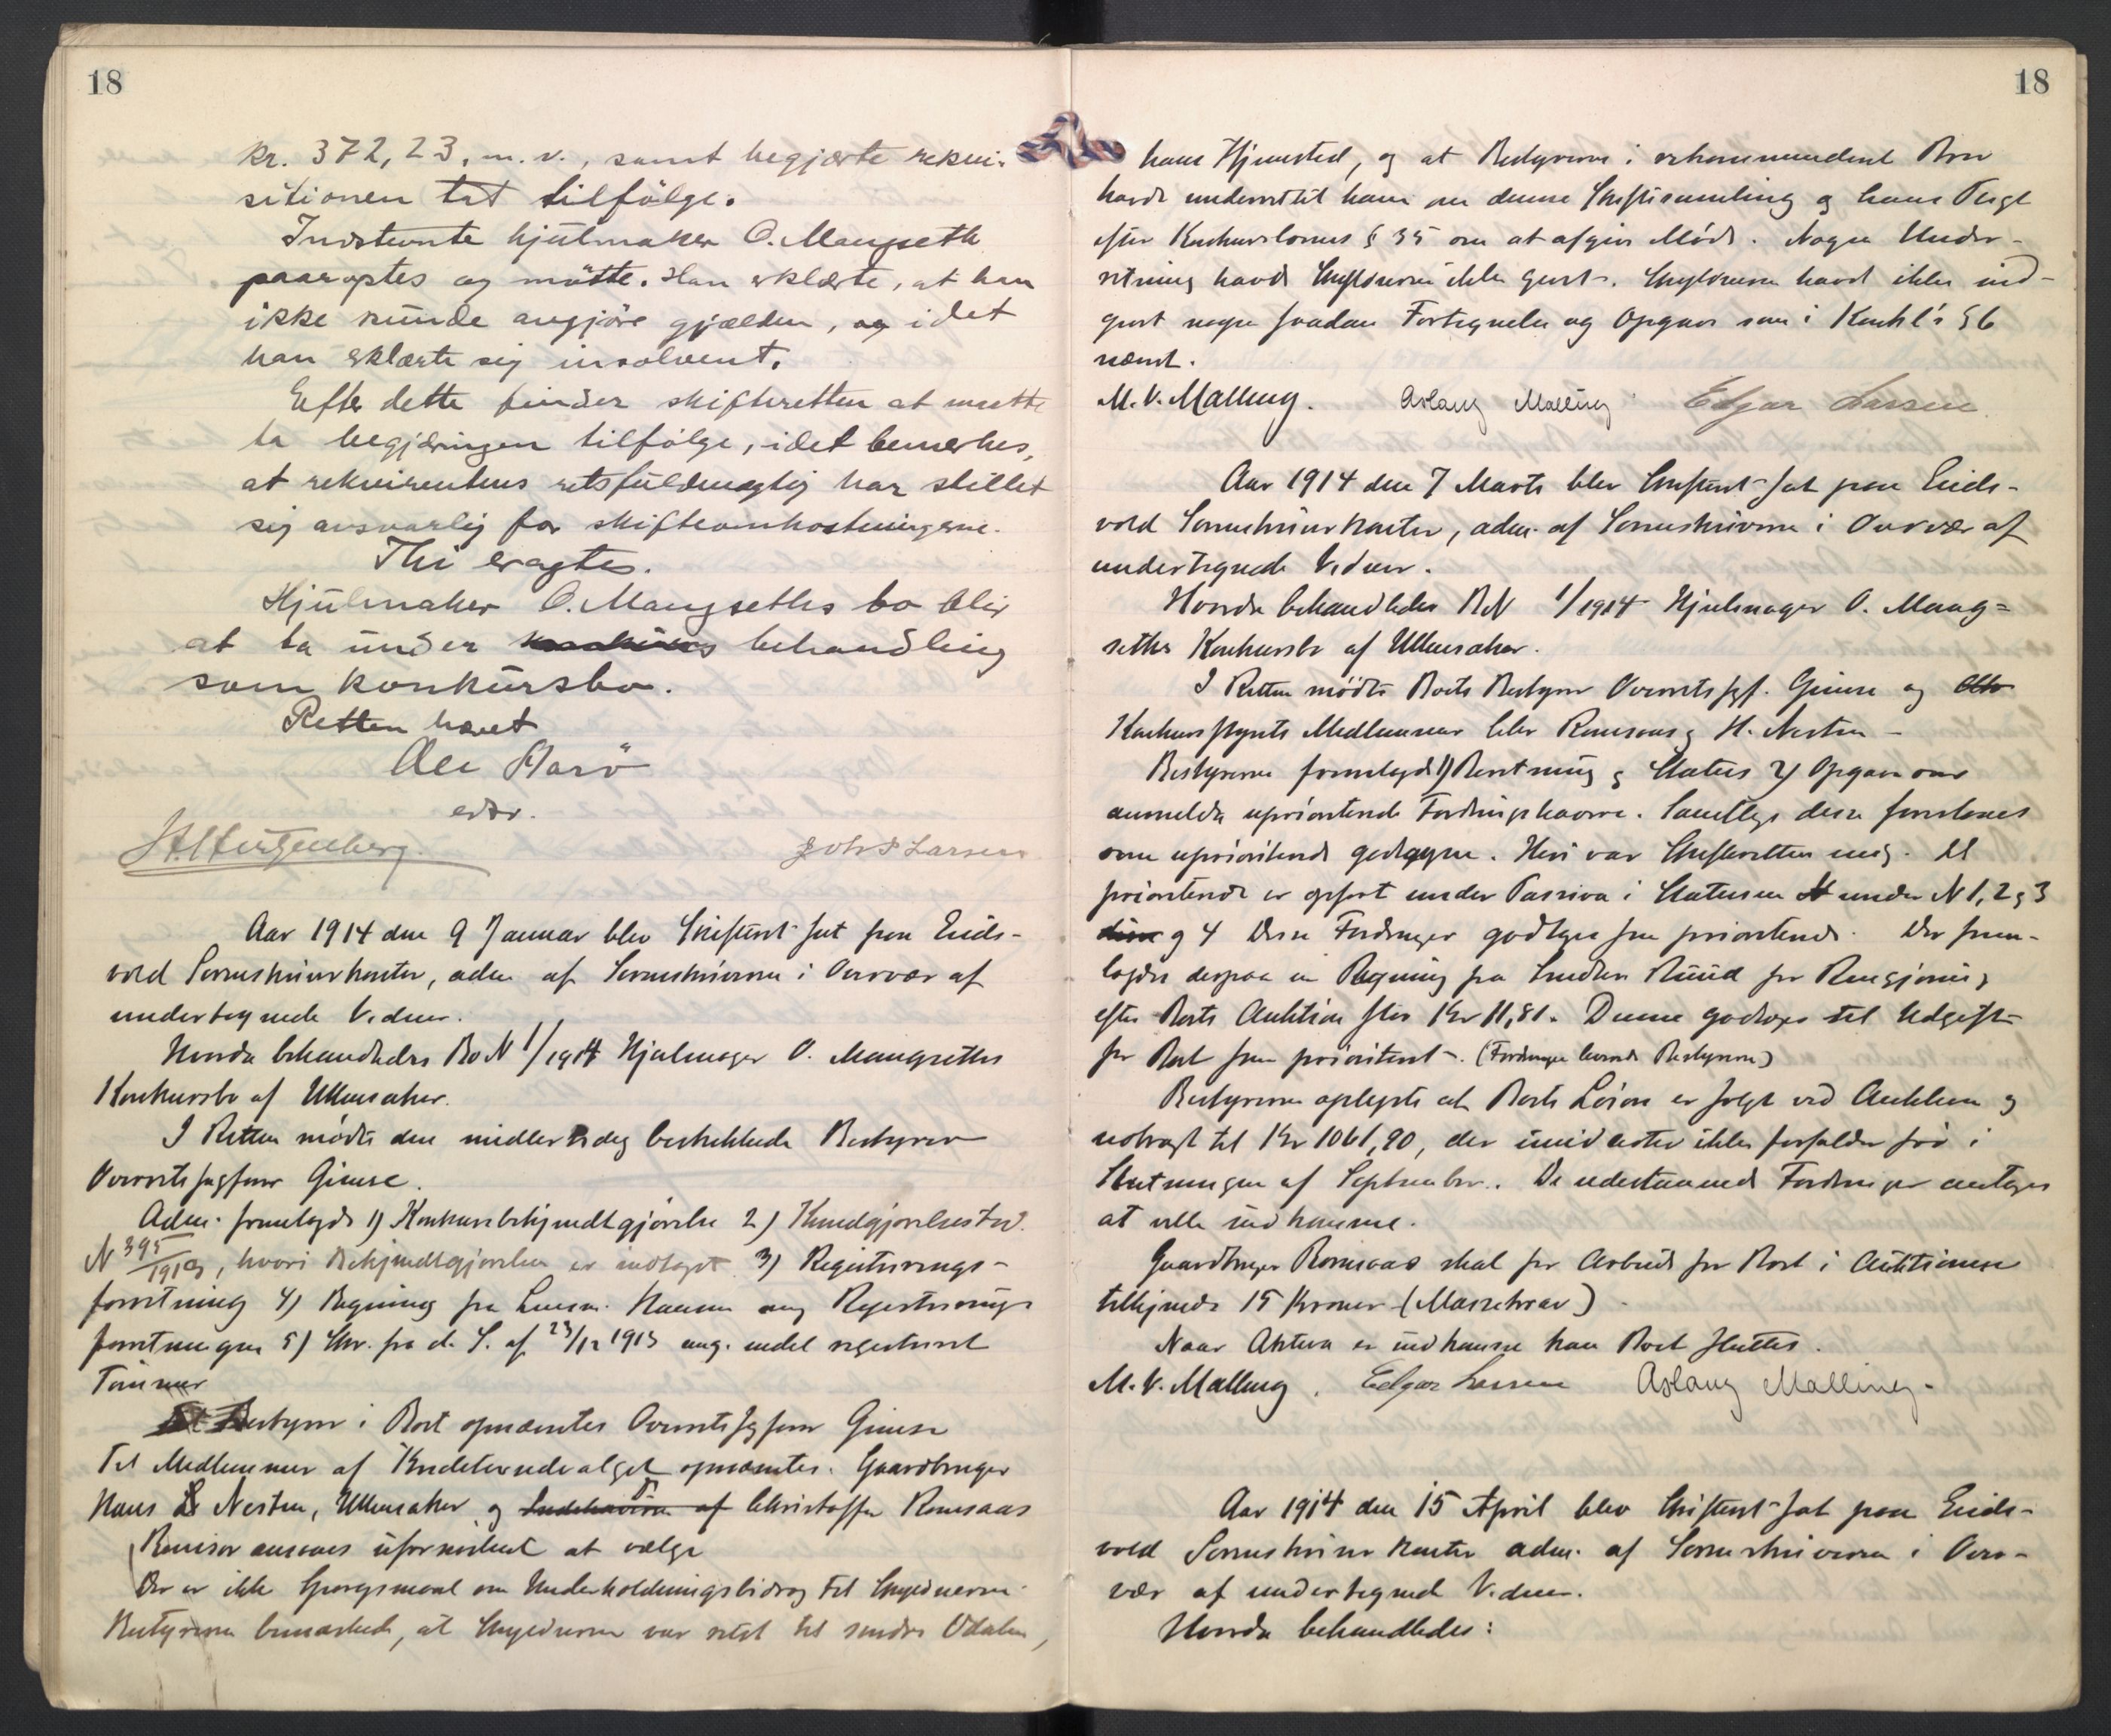 18
kr. 372,23. m. v., samt begjærte rekvi-
sitionen tat tilfölge.
Indstevnte hjulmaker O. Mangseth
paaroptes og mötte. Han erklærte, at han
ikke kunde avgjöre gjælden, og idet
han erklærte sig insolvent.
Efter dette finder skifteretten at maatte
ta begjæringen tilfölge, idet bemerkes,
at rekvirentens retsfuldmægtig har stillet
sig ansvarlig for skifteomkostningerne.
Thi eragtes.
Hjulmaker O. Mangseths bo blir
at ta under behandling
som konkursbo.
Retten hævet
Ole Harö
edsv.
Johs Larsen
Aar 1914 den 9 Januar blev Skifteret sat paa Eids-
vold Sorenskriverkontor, adm. af Sorenskriveren i Overvær af
undertegnede Vidner.
Hvorda behandledes Bo N 1/1914 Hjulmager O. Mangseths
Konkursbo af Ullensaker.
I Retten mødte den midlertidig beskikkede Bestyrer
Overretssagfører Giuse.
Adm. fremlagde 1) Konkursbekjendtgjørelse 2) Kundgjørelsestid.
N 395/1913, hvori Bekjendtgjørelsen er indtaget 3) Registrerings-
forretning 4) Regning fra Lensm. Hansen ang Registrerings-
forretningen 5) Skr. fra d. S. af 23/12 1913 ang. endel registreret
Tømmer
Bestyrer i Boet opnævntes Overretssagfører Giuse
Til Medlemmer af Kreditorudvalget opnævntes: Gaardbruger
Hans Nesten, Ullensaker og Indehaveren af Christoffer Romsaas
Revisor ansaaes ufornødent at vælge
Der er ikke Spørgsmaal om Underholdningsbidrag til Skyldneren.
Bestyreren bemærkede, at Skyldneren var reist til søndre Odalen,
18
hans Hjemsted, og at Bestyreren i rekommenderet Brev
havde underrettet ham om denne Skiftesamling og hans Pligt
efter Konkurslovens § 35 om at afgive Møde. Nogen Under-
retning havde Skyldneren ikke givet. Skyldneren havde ikke ind-
givet nogen saadan Fortegnelse og Opgave som i Konkl's § 6
nævnt.
M. V. Malling. Aslaug Malling Edgar Larsen
Aar 1914 den 7 Marts blev Skifteret sat paa Eids-
vold Sorenskriverkontor, adm. af Sorenskriveren i Overvær af
undertegnede Vidner.
Hvorda behandledes Bo N 1/1914 Hjulmager O. Mang=
seths Konkursbo af Ullensaker.
I Retten mødte Boets Bestyrer Overretssgf. Giuse og
Konkursstyrets Medlemmer blev Romsaas og H. Nesten –
Bestyreren fremlagde 1) Beretning og Status 2) Opgave over
anmeldte uprioriterede Fordringshavere. Samtlige disse foresloges
som uprioriterede godtagne. Heri var Skifteretten enig. Af
prioriterede er opført under Passiva i Statusen under N 1, 2 og 3
og 4 Disse Fordringer godtages som prioriterede. Der frem-
lagdes desuden en Regning fra Smeden Ruud for Rengjøring
efter Boets Auktion stor Kr 11,81. Denne godtoges til Udgift
for Boet som prioriteret. (Fordringen havde Bestyreren)
Bestyreren oplyste at Boets Løsøre er solgt ved Auktion og
udbragt til Kr 1061,90, der imidlertid ikke forfalder før i
Slutningen af September. De udestaaende Fordringer antages
at ville indkomme.
Gaardbruger Romsaas skal for Arbeide for Boet i Auktionen
tilkjendes 15 Kroner (Massekrav)
Naar Aktiva er indkomne kan Boet sluttes.
M. V. Malling. Edgar Larsen Aslaug Malling.
Aar 1914 den 15 April blev Skifteret sat paa Eids-
vold Sorenskriver kontor adm. af Sorenskriveren i Over-
vær af undertegnede Vidner.
Hvorda behandledes: